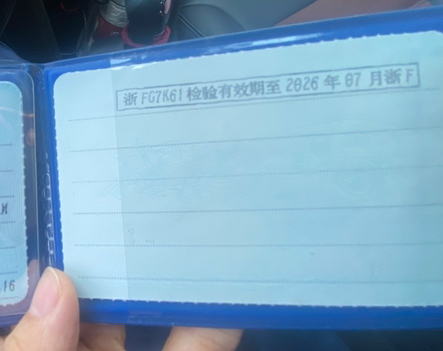 浙FG7K61检验有效期至2026年07月浙F
16